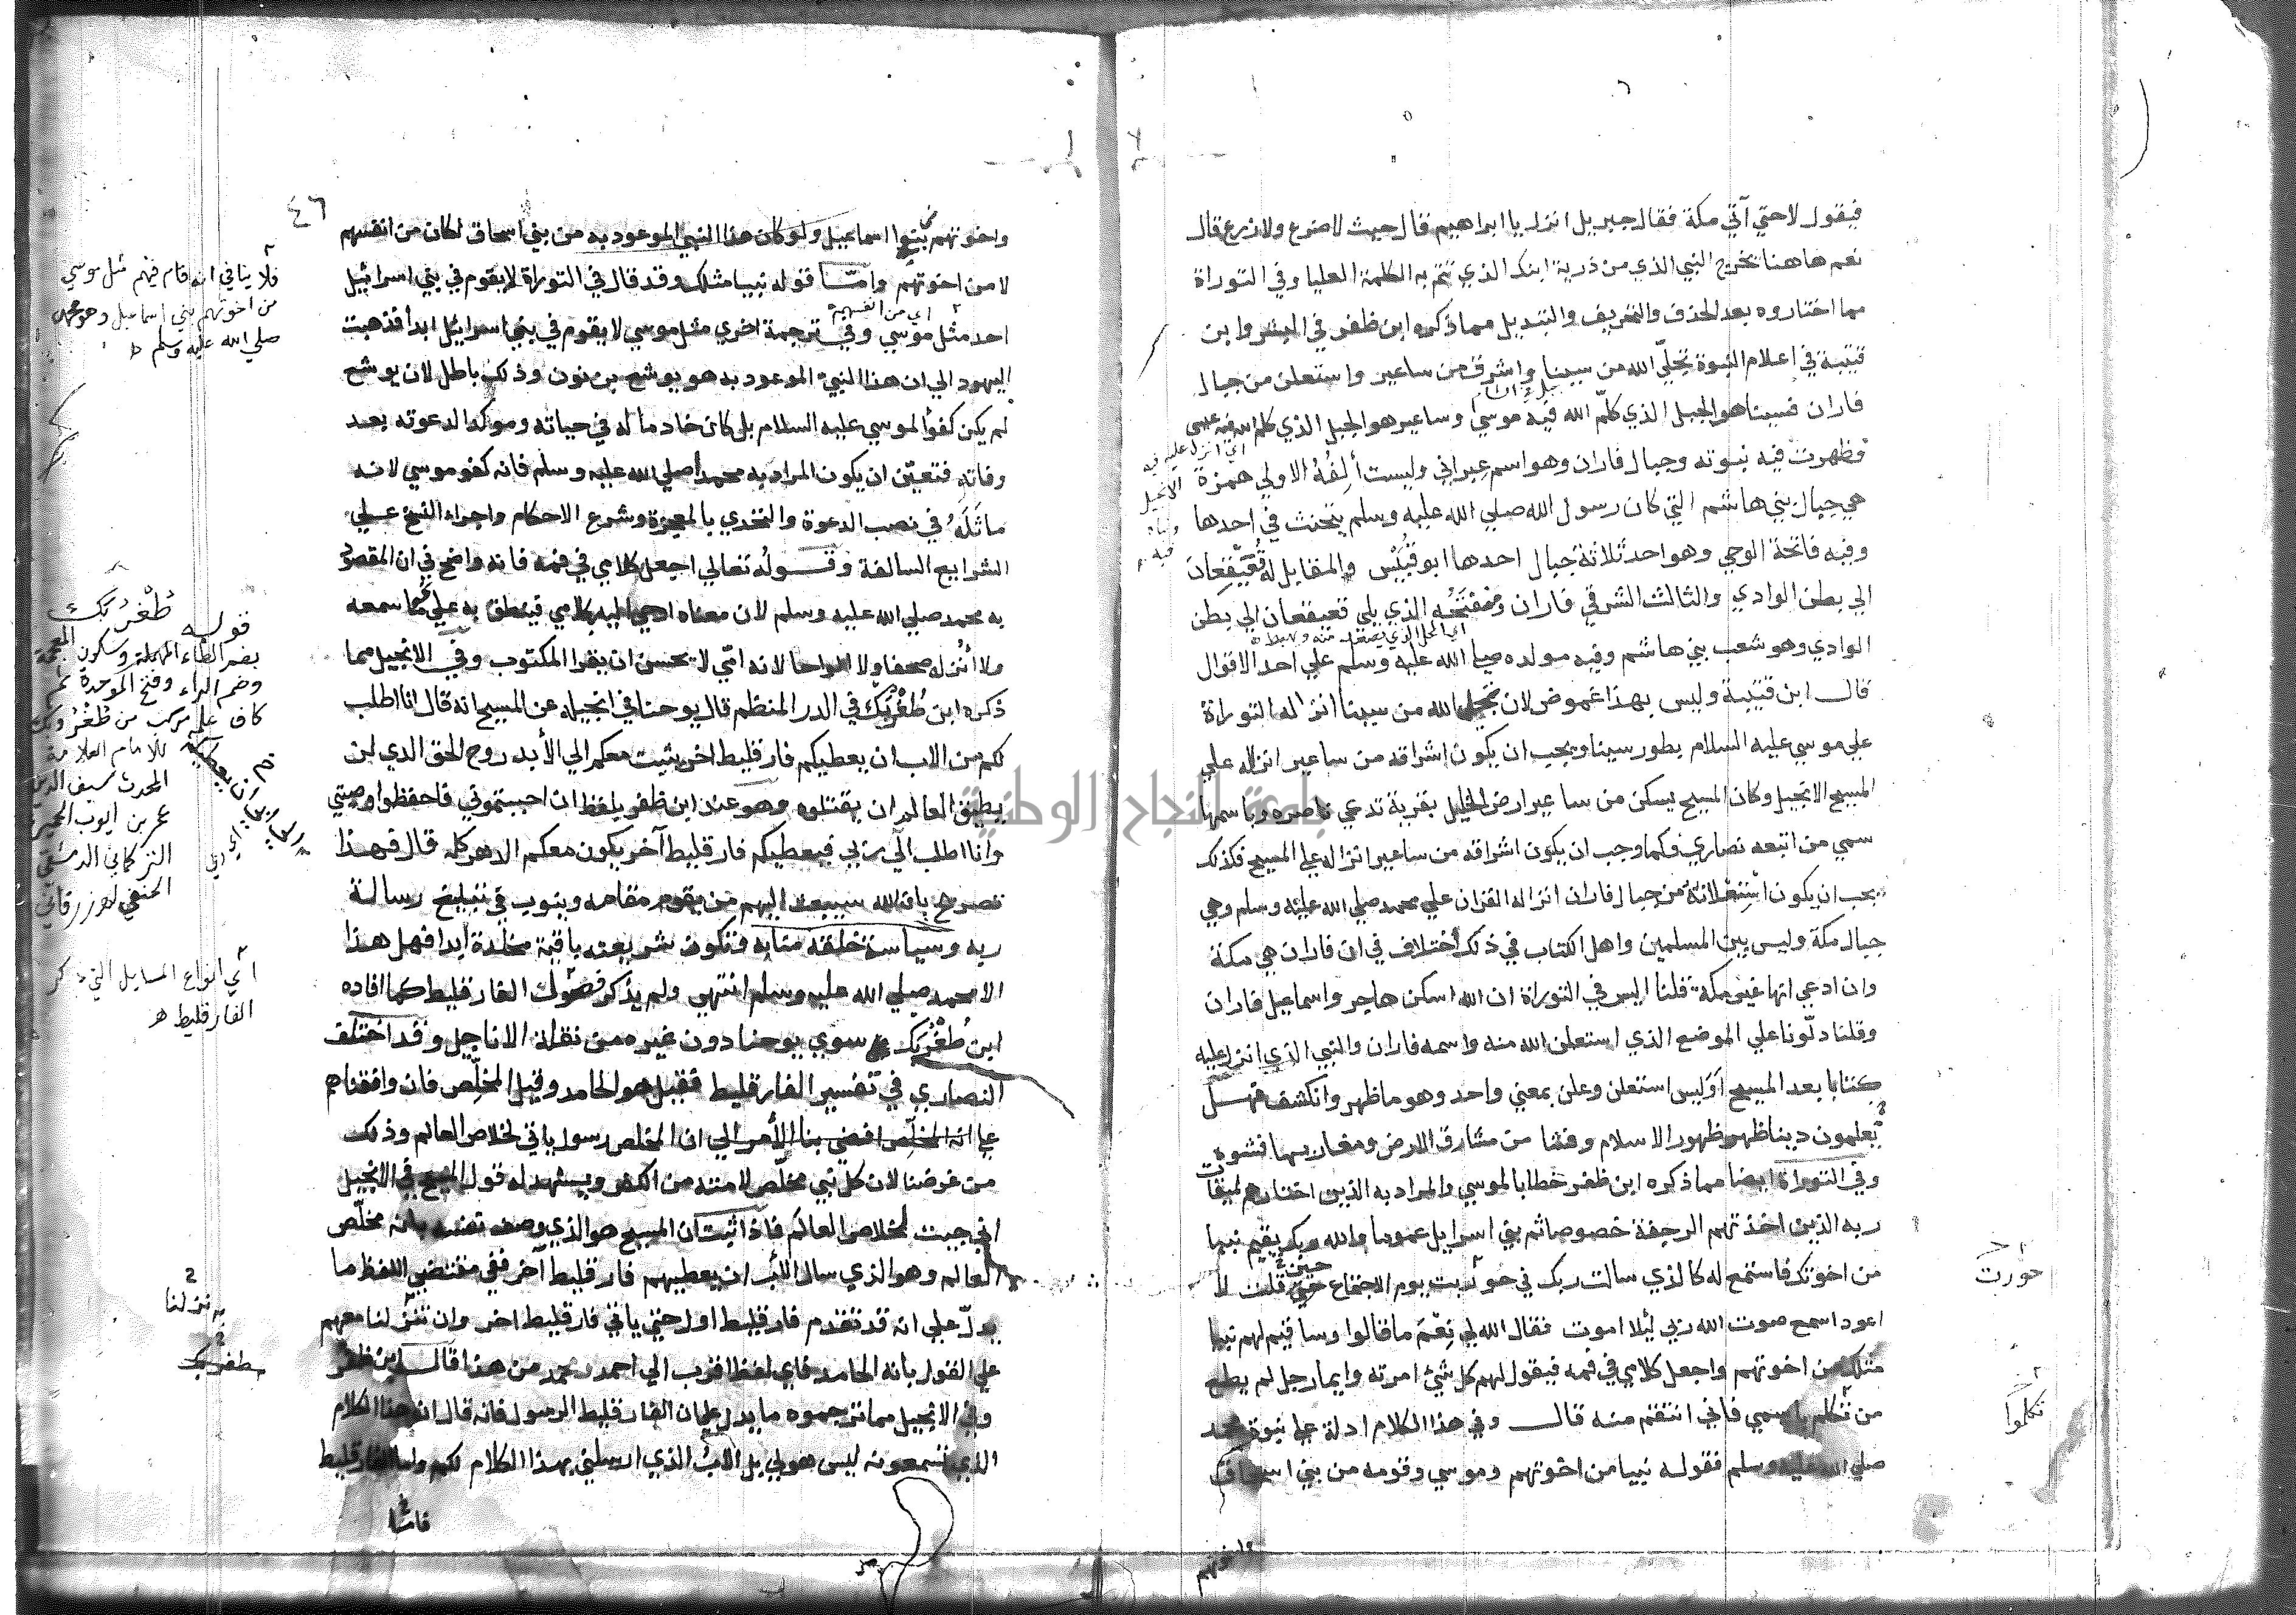 فيقول لا حتي آتي مكة فقال جبريل انزل يا ابراهيم قال حيث لا ضرع ولا زرع قال
نعم هاهنا يخرج النبي الذي من ذرية ابنك الذي تتم به الكلمة العليا وفي التوراة
مما اختاروه بعد الحذف والتحريف والتبديل مما ذكره ابن ظفر في البشر وابن
قتيبة في اعلام النبوة تجلّي الله من سينا واشرق من ساعير واستعلن من جبال
فاران فسينا هو الجبل الذي كلّم الله فيه موسي وساعير هو الجبل الذي كلم الله فيه عيسى
فظهرت فيه نبوته وجبال فاران وهو اسم عبراني وليست ألفه الاولي همزة
هي جبال بني هاشم التي كان رسول الله صلي الله عليه وسلم يتحنث في احدها
وفيه فاتحة الوحي وهو احد ثلاثة جبال احدها ابو قبيس والمقابل له قعيقعان
الي بطن الوادي والثالث الشرقي فاران ومنفتحه الذي يلي قعيقعان الي بطن
الوادي وهو شعب بني هاشم وفيه مولده صلي الله عليه وسلم علي احد الاقوال
قال ابن قتيبة وليس بهذا غموض لان تجلي الله من سينا انزاله التوراة
علي موسي عليه السلام بطور سينا ويجب ان يكون اشراقه من ساعير انزاله علي
المسيح الانجيل وكان المسيح يسكن من ساعير ارض الخليل بقرية تدعي ناصره وباسمها
سمي من اتبعه نصاري فكما وجب ان يكون اشراقه من ساعير انزاله علي المسيح فكذلك
يجب ان يكون استعلانه من جبال فاران انزاله القران علي محمد صلي الله عليه وسلم وهي
جبال مكة وليس بين المسلمين واهل الكتاب في ذلك اختلاف في ان فاران هي مكة
وان ادعي انها غير مكة قلنا اليس في التوراة ان الله اسكن هاجر واسماعيل فاران
وقلنا دلّونا علي الموضع الذي استعلن الله منه واسمه فاران والنبي الذي انزل عليه
كتابا بعد المسيح أوليس استعلن وعلن بمعني واحد وهو ما ظهر وانكشف فهل
تعلمون دينا ظهر ظهور الاسلام وفشا من مشارق الارض ومغاربها فشوه
وفي التوراة ايضا مما ذكره ابن ظفر خطابا لموسي والمراد به الذين اختارهم لميقات
ربه الذين اخذتهم الرجفة خصوصا ثم بني اسرايل عموما والله ربك يقيم نبيا
من اخوتك فاستمع له كالذي سالت ربك في حوريت يوم الاجتماع حين قلت لا
اعود اسمع صوت الله ربي ليلا اموت فقال الله لي نعم ما قالوا وساقيم لهم نبيا
مثلك من اخوتهم واجعل كلامي في فمه فيقول لهم كل شئ امرته وايما رجل لم يطع
من تكلم باسمي فاني انتقم منه قال وفي هذا الكلام ادلة علي نبوة محمد
صلي الله عليه وسلم فقوله نبيا من اخوتهم وموسي وقومه من بني اسحاق
واخوتهم
اي انزل عليه فيه
الانجيل
اي المحل الذي يصعد منه ويهبط
حورت
تكلموا
٤٦
واخوتهم بنوا اسماعيل ولو كان هذا النبي الموعود به من بني اسحاق لكان من انفسهم
لا من اخوتهم وامّا قوله نبيا مثلك وقد قال في التوراة لا يقوم في بني اسراييل
اي من انفسهم
احد مثل موسي وفي ترجمة اخري مثل موسي لا يقوم في بني اسرايل ابدا فذهبت
اليهود الي ان هذا النبي الموعود به هو يوشع بن نون وذلك باطل لان يوشع
لم يكن كفوا لموسي عليه السلام بل كان خادما له في حياته وموكدا لدعوته بعد
وفاته فتعين ان يكون المراد به محمدا صلي الله عليه وسلم فانه كفو موسي لانه
ماثله في نصب الدعوة والتحدي بالمعجزة وشرع الاحكام واجراء النسخ علي
الشرايع السالفة وقوله تعالي اجعل كلامي في فمه فانه واضح في ان المقصود
به محمد صلي الله عليه وسلم لان معناه اوحي اليه بكلامي فينطق به علي نحو ما سمعه
ولا انزله صحفا ولا الواحا لانه امّي لا يحسن ان يقرا المكتوب وفي الانجيل مما
ذكره ابن طُغْرُبَك في الدر المنظم قال يوحنا في انجيله عن المسيح انه قال انا اطلب
لكم من الاب ان يعطيكم فارقليط اخر يثبت معكم الي الأبد روح الحق الذي لن
يطيق العالم ان يقتلوه وهو عند ابن ظفر بلفظ ان احببتموني فاحفظوا وصيتي
وانا اطلب الي ربي فيعطيكم فارقليط آخر يكون معكم الدهر كله قال فهذا
تصريح بان الله سيبعث اليهم من يقوم مقامه وينوب في تبليغ رسالة
ربه وسياسة خلقه منابه فتكون شريعته باقية مخلّدة ابدا فهل هذا
الا محمد صلي الله عليه وسلم انتهي ولم يذكر فصول الفارقليط كما افاده
ابن طُغْرُبَك سوي يوحنا دون غيره من نقلة الاناجيل وقد اختلف
النصاري في تفسير الفارقليط فقيل هو الحامد وقيل المخلّص فان وافقناهم
علي انه المخلّص افضي بنا الأمر الي ان المخلص رسول ياتي لخلاص العالم وذلك
من غرضنا لان كل نبي مخلّص لامته من الكفر ويشهد له قول المسيح في الانجيل
اني جيت لخلاص العالم فاذا ثبت ان المسيح هو الذي وصف نفسه بانه مخلّص
العالم وهو الذي سال الاب ان يعطيهم فارقليط آخر ففي مقتضي اللفظ ما
يدلّ علي انه قد تقدم فارقليط اول حتي ياتي فارقليط اخر وان تنزّلنا معهم
علي القول بانه الحامد فاي لفظ اقرب الي احمد ومحمد من هذا قال ابن ظفر
وفي الانجيل مما ترجموه ما يدل علي ان الفارقليط الرسول فانه قال ان هذا الكلام
الذي تسمعونه ليس هو لي بل الاب الذي ارسلني بهذا الكلام لكم واما الفارقليط
فلا ينافي انه قام فيهم مثل موسي
من اخوتهم بني اسماعيل وهو محمد
صلي الله عليه وسلم
قوله طُغْرُبَك
بضم الطاء المهملة وسكون المعجمة
وضم الراء وفتح الموحدة ثم
كاف علم مركب من طغر وبك
للامام العلامة
المحدث سيف الدين
عمر بن ايوب الحميري
التركماني الدمشقي
الحنفي
اي انواع المسايل التي ذكر
الفارقليط
تنزلنا
جامعة النجاح الوطنية